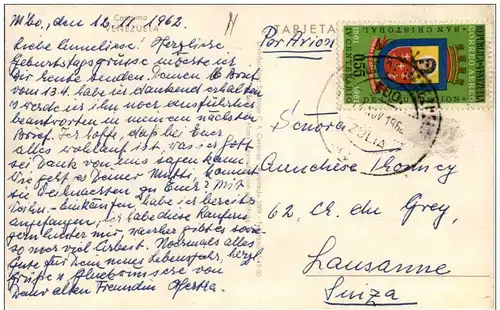 M'bo, den 12. XI. 1962.
Caracas
VENEZUELA
TARJETA
Liebe Anneliese! Herzliche
Geburtstagsgrüsse möchte ich
Dir heute senden. Deinen lb Brief
vom 13.4. habe ich dankend erhalten
werde ich ihn noch ausführlich
beantworten in meinem nächsten
Brief. Ich hoffe, dass bei Euch
alles wohlauf ist, was ich gott
sei Dank von uns sagen kann.
Wie geht es Deiner Mutti, kommt
sie Weihnachten zu Euch? Mit
Weihn.-Einkäufen habe ich bereits
angefangen, ich habe diese Kauferei
gern hinter mir, vorher gibt es sowie-
so noch viel Arbeit. Nochmals alles
Gute für Dein neues Lebensjahr, herzl.
Grüsse u. Glückwünsche von
Deiner alten Freundin Hertha
Par Avion
REPUBLICA DE VENEZUELA
CORREO AEREO
SAN CRISTOBAL
1561
1961
0,55
ZULIA
Señora
Anneliese
62, Ch. du Grey,
Lausanne
Suiza